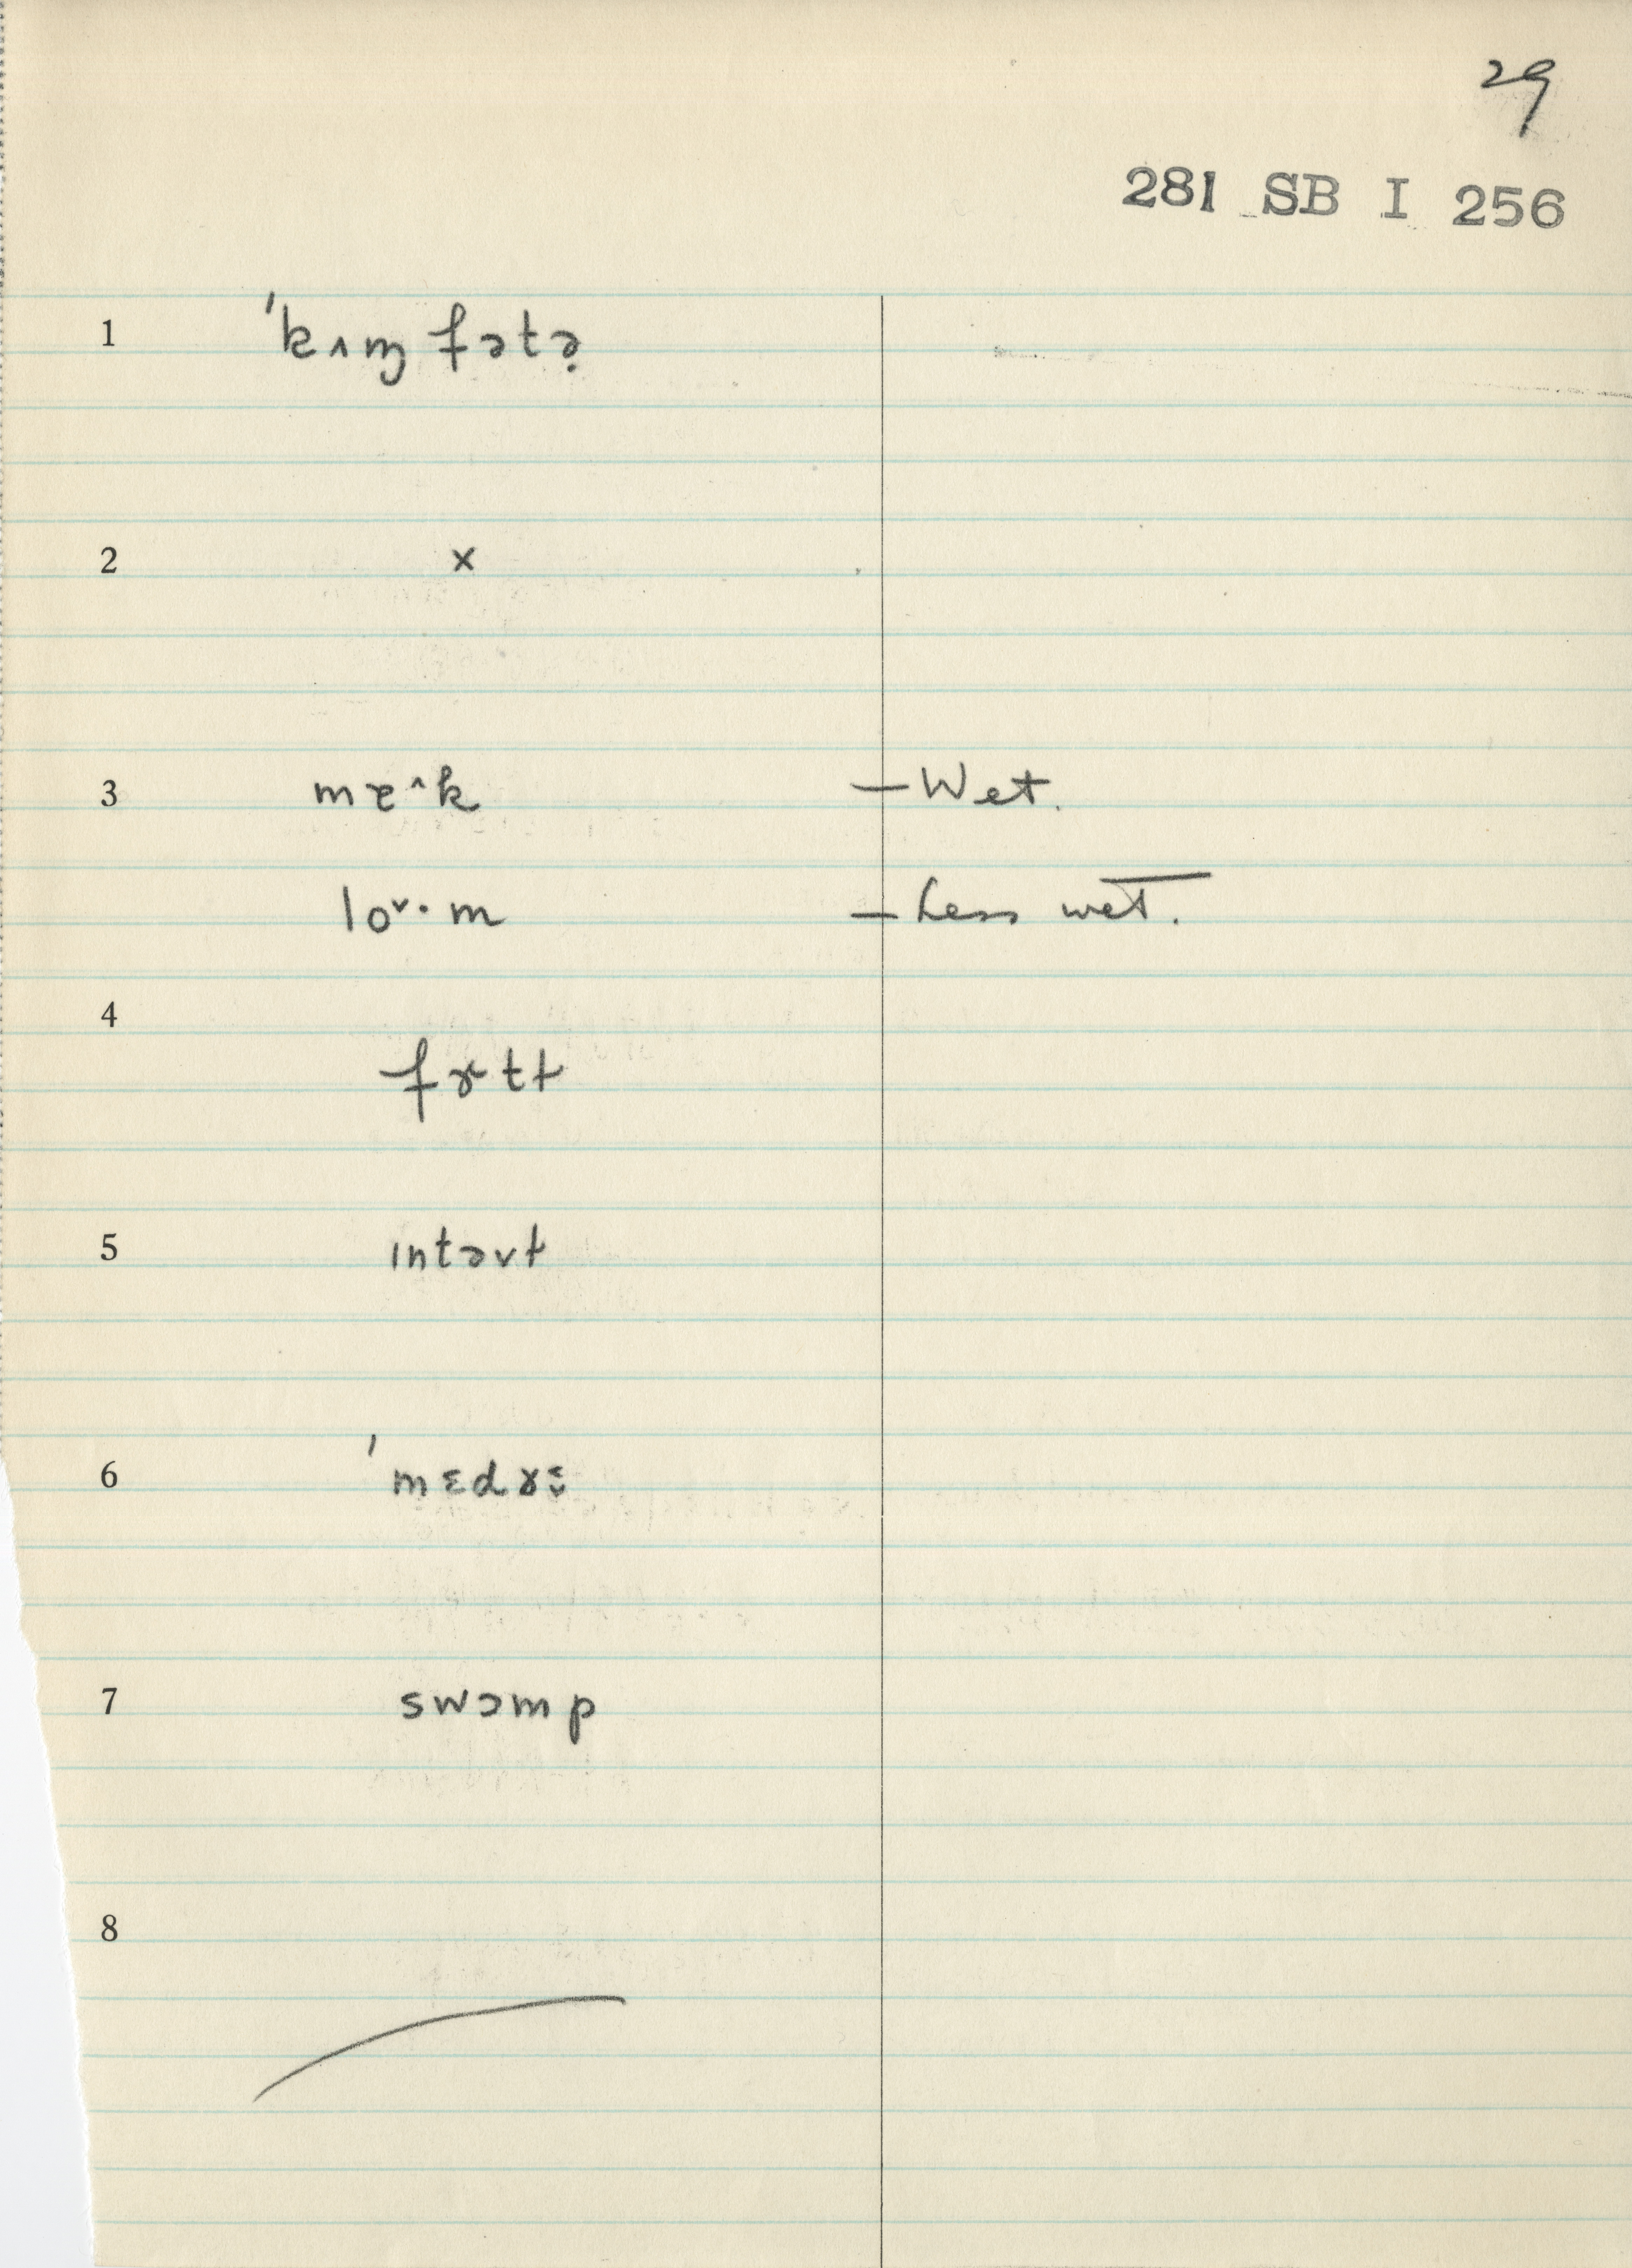 29
281 SB I 256
1 ˈkʌɱfətə̣
2 x
3 mɐ^k — Wet.
loᵛ·m — Less wet.
4
fɤtɫ
5 ɪntəvɫ
6 ˈmɛdɤɛ̬
7 swɔmp
8